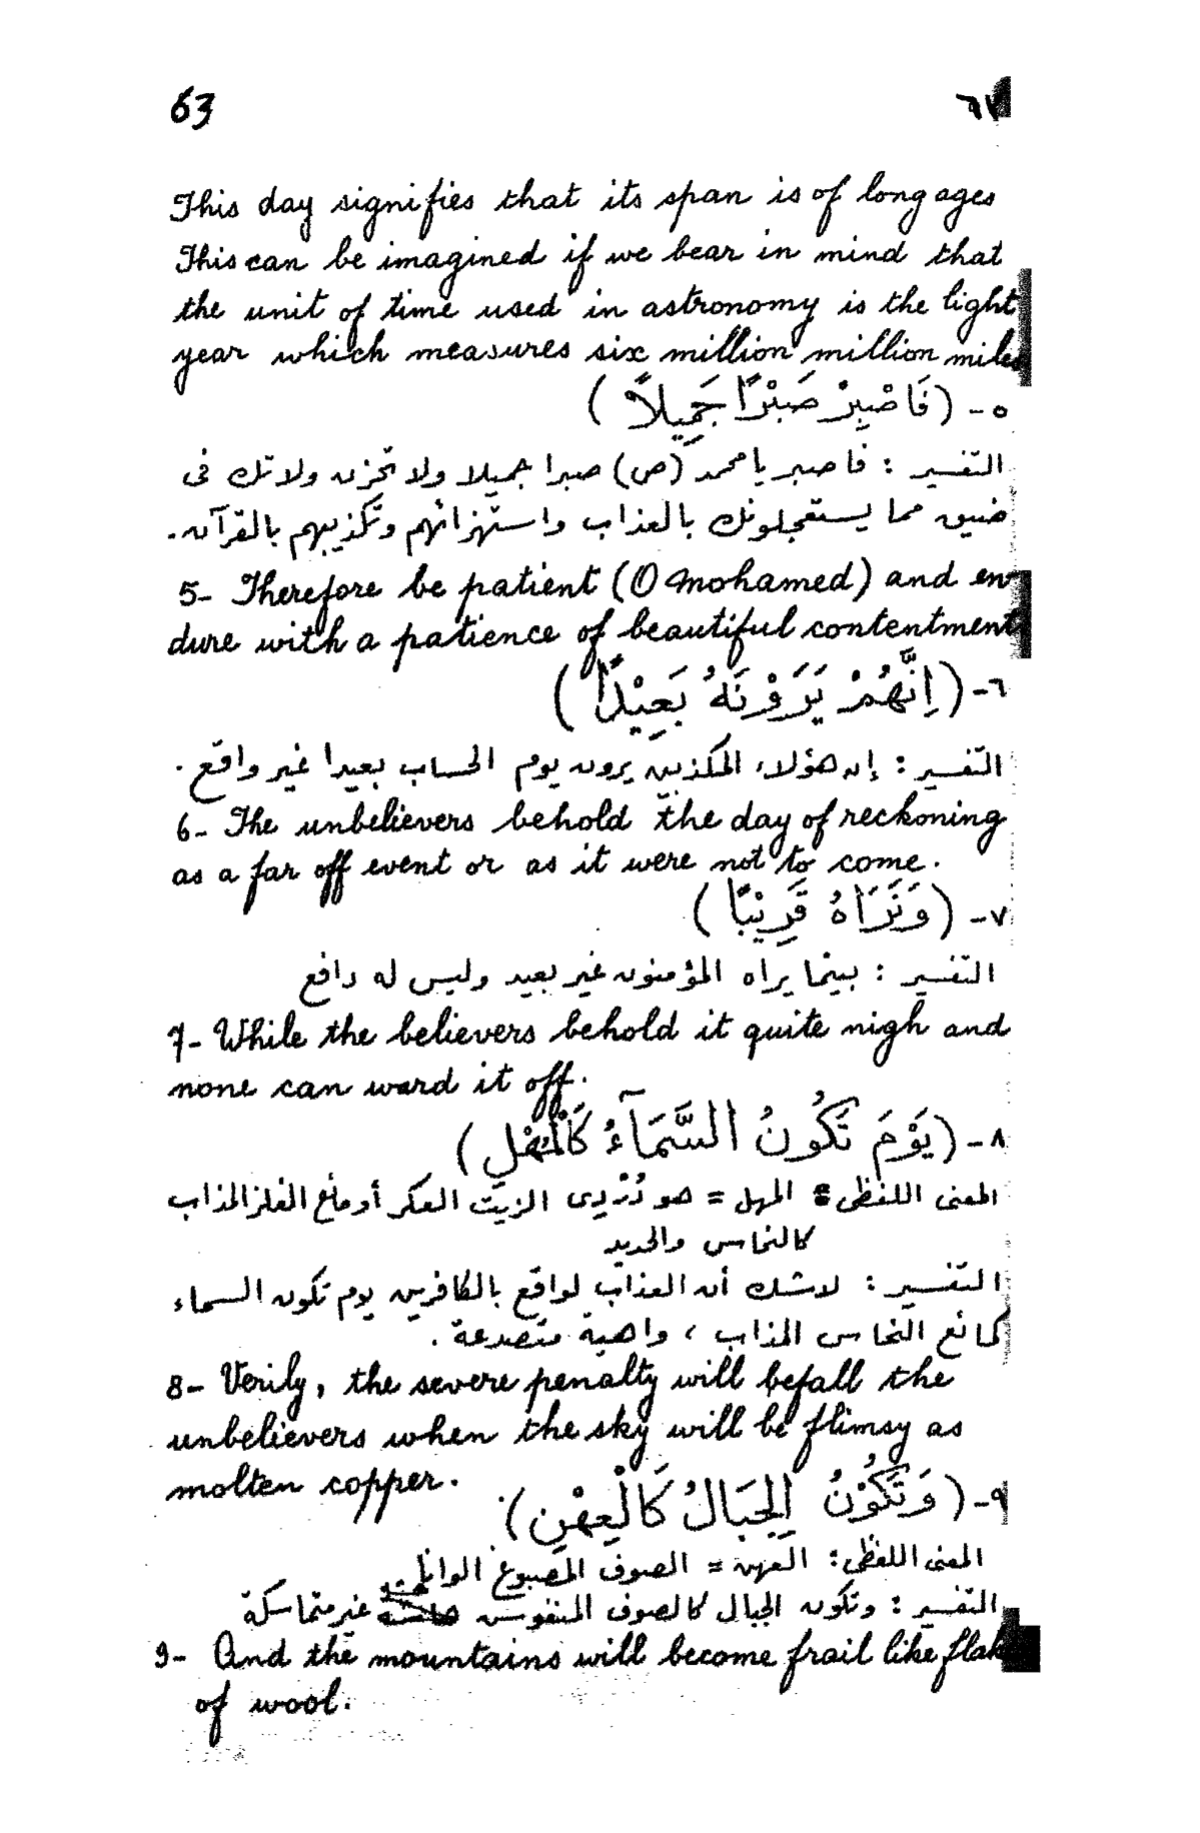 63
This day signifies that its span is of long ages
This can be imagined if we bear in mind that
the unit of time used in astronomy is the light
year which measures six million million miles
٥- (فَاصْبِرْ صَبْرًا جَمِيلاً)
التفسير : فاصبر يا محمد (ص) صبرا جميلا ولا تحزن ولا تك فى
ضيق مما يستعجلونك بالعذاب واستهزائهم وتكذيبهم بالقرآن.
5- Therefore be patient (O Mohamed) and en-
dure with a patience of beautiful contentment
٦- (إِنَّهُمْ يَرَوْنَهُ بَعِيْدًا)
التفسير : إن هؤلاء المكذبين يرون يوم الحساب بعيدا غير واقع.
6- The unbelievers behold the day of reckoning
as a far off event or as it were not to come.
٧- (وَنَرَاهُ قَرِيْبًا)
التفسير : بينما يراه المؤمنون غير بعيد وليس له دافع
7- While the believers behold it quite nigh and
none can ward it off.
٨- (يَوْمَ تَكُونُ السَّمَآءُ كَالْمُهْلِ)
المعنى اللفظى : المهل = هو دُرْدِى الزيت العكر أو مائع الفلز المذاب
كالنحاس والحديد
التفسير : لا شك أن العذاب لواقع بالكافرين يوم تكون السماء
كمائع النحاس المذاب ، واهية متصدعة .
8- Verily, the severe penalty will befall the
unbelievers when the sky will be flimsy as
molten copper.
٩- (وَتَكُوْنُ الْجِبَالُ كَالْعِهْنِ).
المعنى اللفظى : العهن = الصوف المصبوغ
التفسير : وتكون الجبال كالصوف المنفوش غير متماسكة
9- And the mountains will become frail like
of wool.